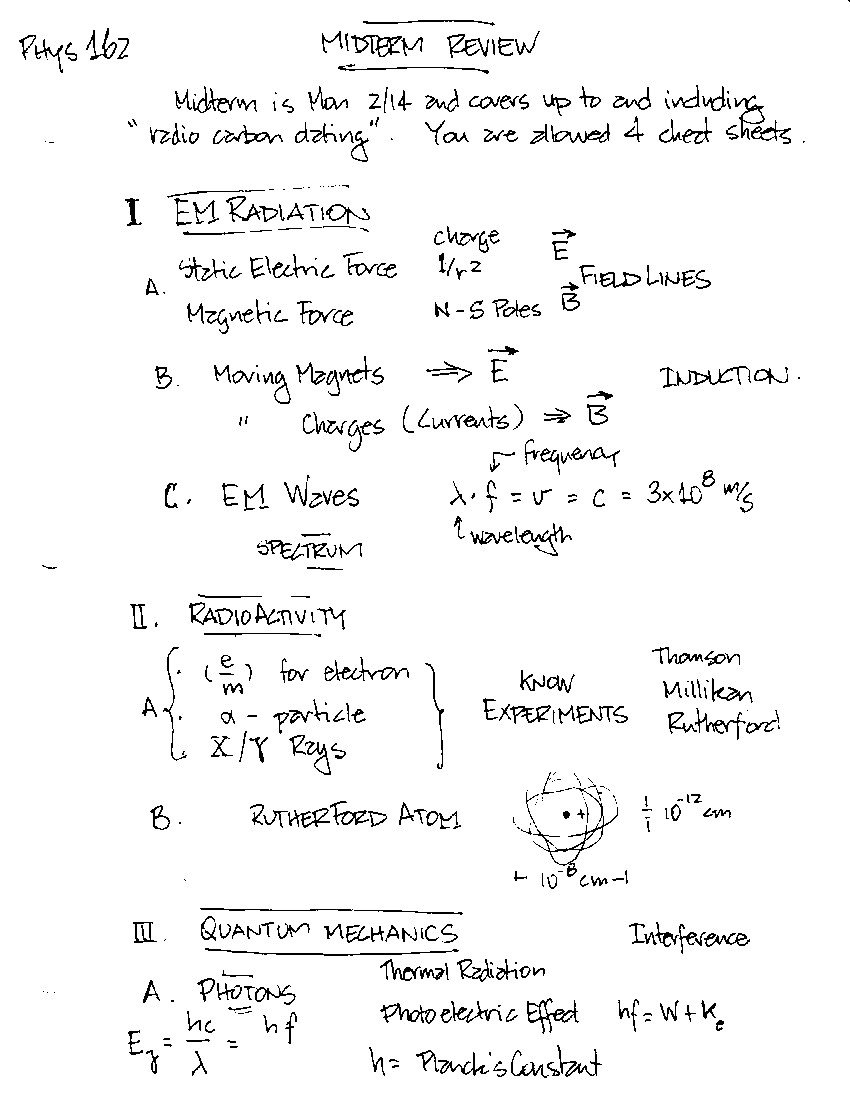 Phys 162
MIDTERM REVIEW
Midterm is Mon 2/14 and covers up to and including
"radio carbon dating". You are allowed 4 cheat sheets.
I EM RADIATION
A. Static Electric Force charge 1/r2 E
Magnetic Force N-S Poles B
FIELD LINES
B. Moving Magnets ⇒ E INDUCTION.
" Charges (Currents) ⇒ B
frequency
C. EM Waves λ·f = v = c = 3x10^8 m/s
wavelength
SPECTRUM
II. RADIOACTIVITY
A. (e/m) for electron
α - particle
X/γ Rays
KNOW
EXPERIMENTS
Thomson
Millikan
Rutherford
B. RUTHERFORD ATOM
+
10^-12 cm
10^-8 cm
III. QUANTUM MECHANICS
Interference
A. PHOTONS Thermal Radiation
Photoelectric Effect hf = W + Ke
Eγ = hc/λ = hf
h = Planck's Constant